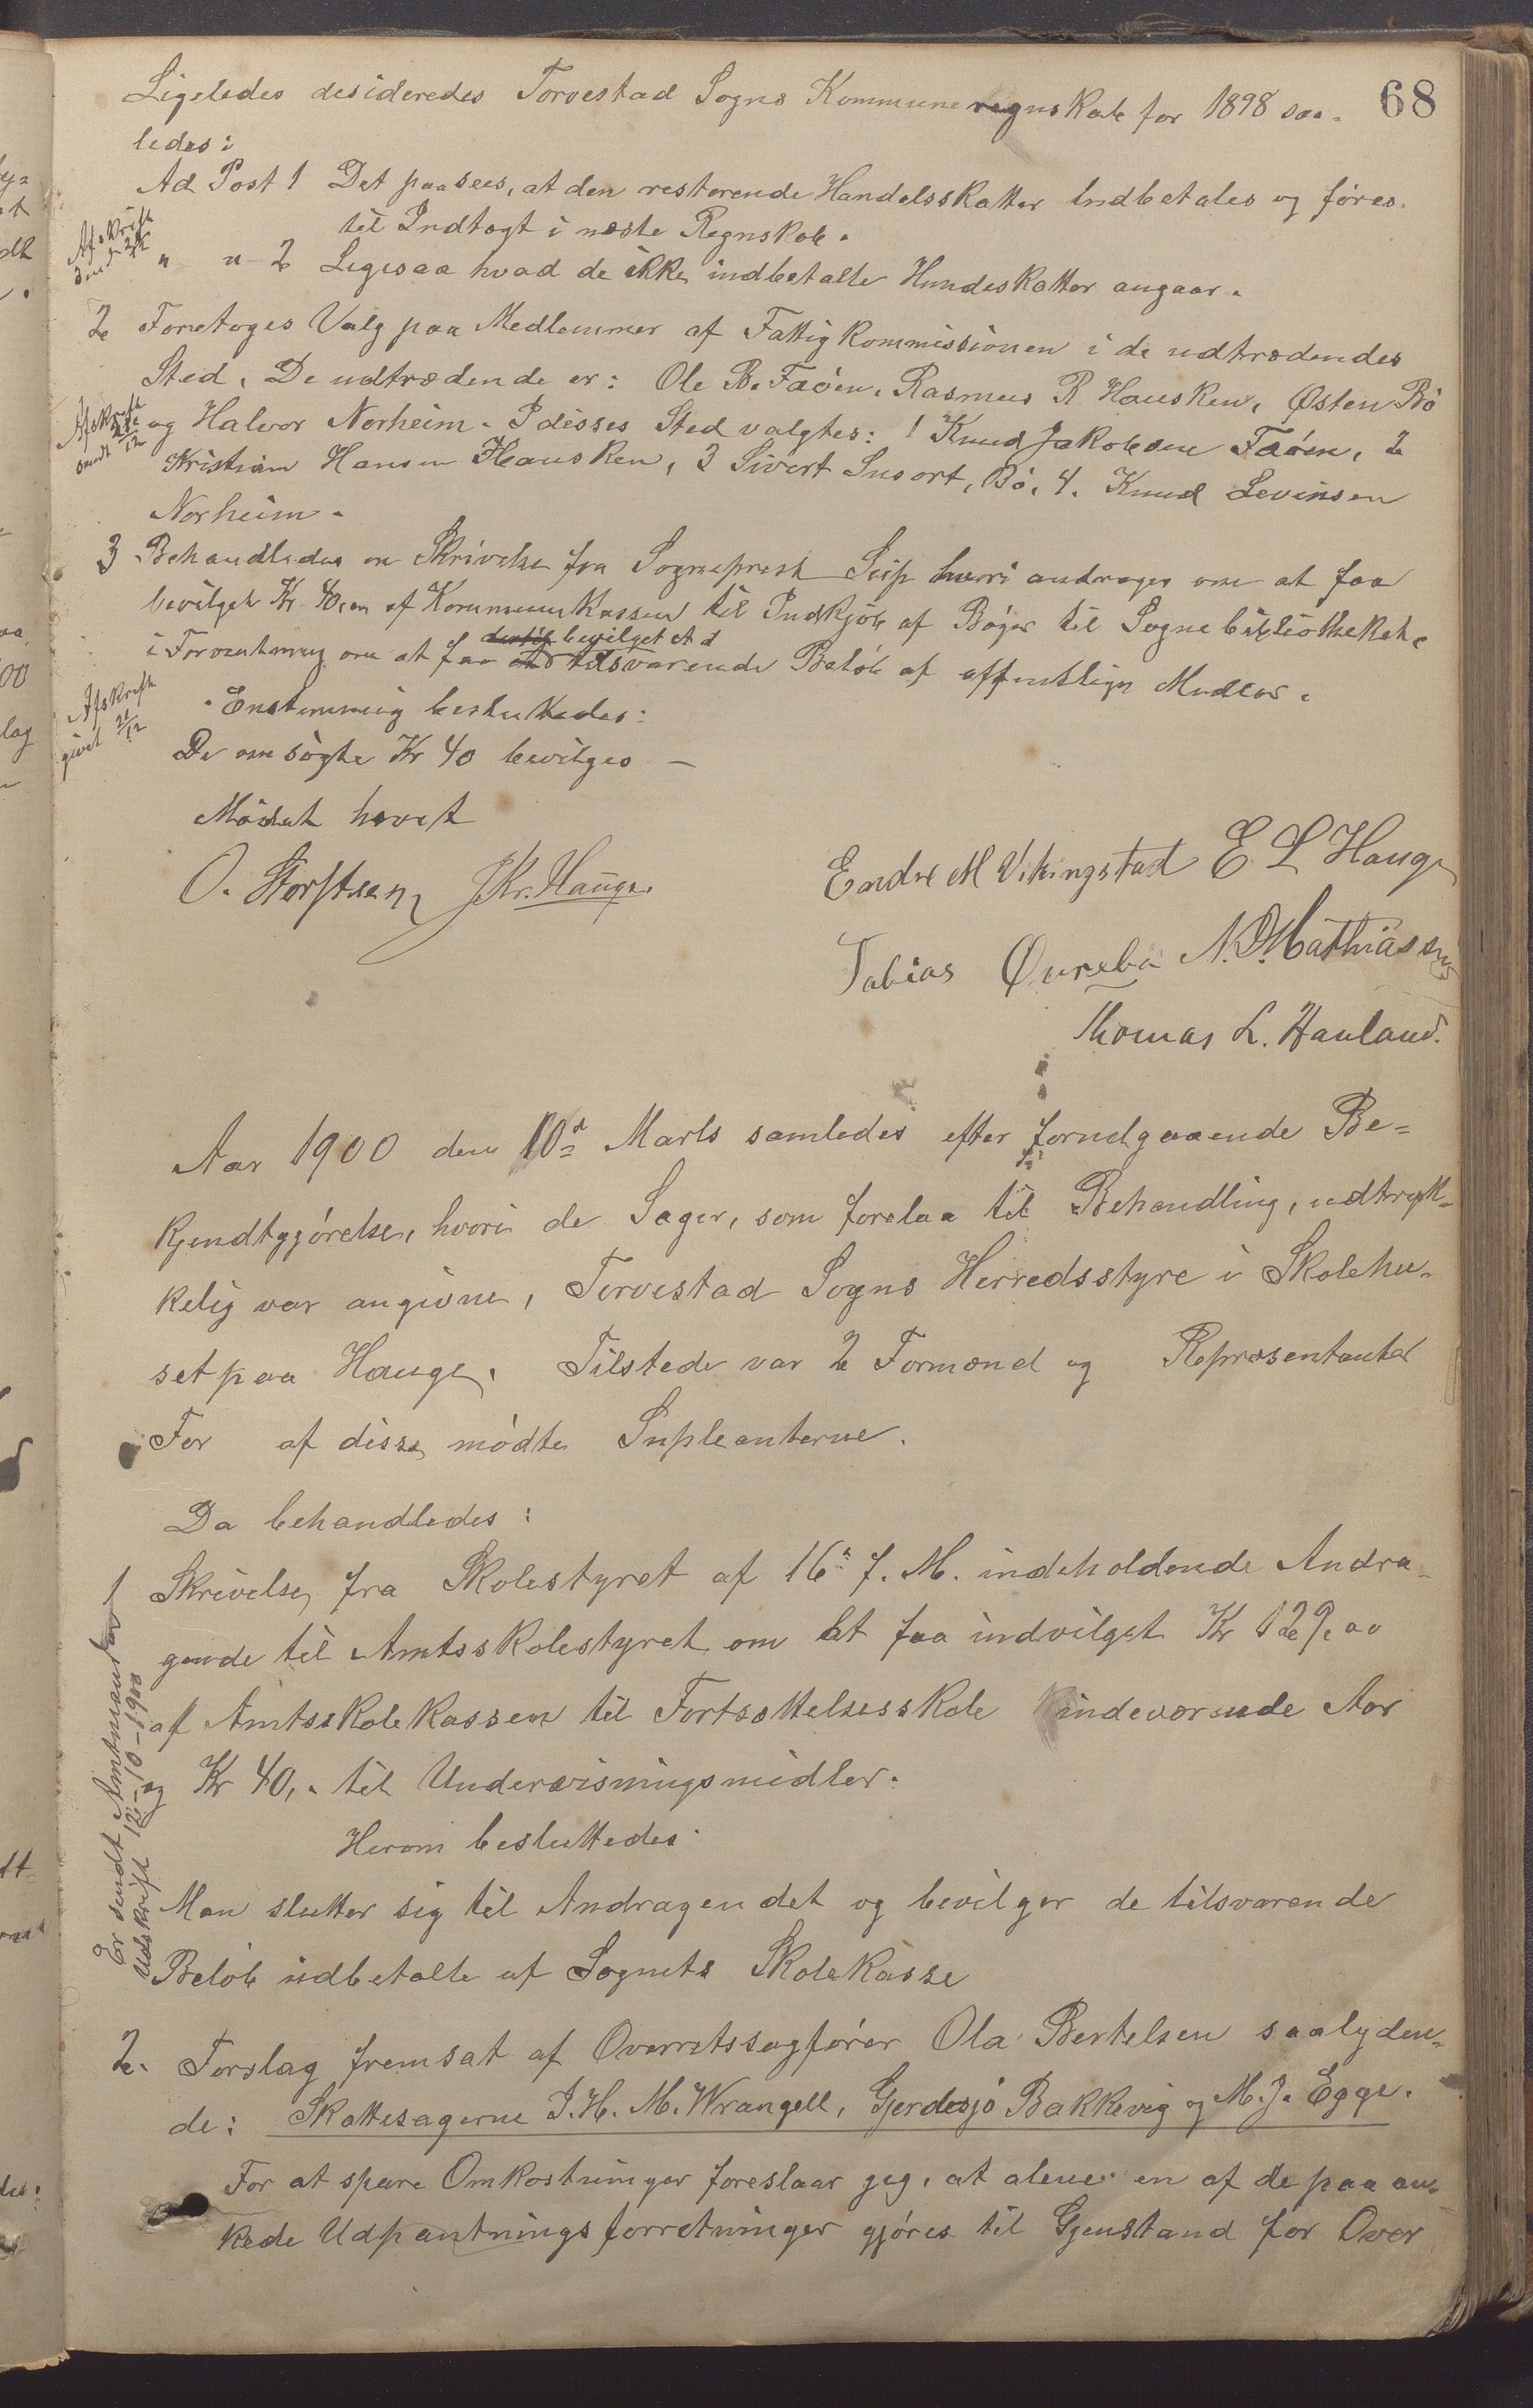 68
Ligeledes desideredes Torvestad Sogns Kommuneregnskab for 1898 saa-
ledes:
Ad Post 1 Det paasees, at den resterende Handelsskatter indbetales og føres
til Indtægt i næste Regnskab.
Afskrift
sendt
" " 2 Ligesaa hvad de ikke indbetalte Hundeskatter angaar.
2 Foretoges Valg paa Medlemmer af Fattigkommissionen i de udtrædendes
Sted. De udtrædende er: Ole B. Faøen, Rasmus R Hausken, Østen Bø
Afskrift
sendt 21/12
og Halvor Norheim. I disses Sted valgtes: 1 Knud Jakobsen Faøen, 2
Kristian Hansen Hausken, 3 Sivert Susort, Bø, 4. Knud Levinsen
Norheim.
3 Behandledes en Skrivelse fra Sogneprest Seip hvori andrages om at faa
bevilget Kr 40,00 af Kommunekassen til Indkjøb af Bøger til Sognebibliotheket
i Forventning om at faa bevilget et tilsvarende Beløb af offentlige Midler.
Afskrift
givet 21/12
Enstemmig besluttedes:
De omsøgte Kr 40 bevilges —
Mødet hævet
O. Storsteen J Kr. Hauge.
Endre M Vikingstad E L Hauge
Tobias Øvrebø N. D. Mathiassen
Thomas L. Hauland.
Aar 1900 den 10d Marts samledes efter forudgaaende Be-
kjendtgjørelse, hvori de Sager, som forelaa til Behandling, udtryk-
kelig var angivne, Torvestad Sogns Herredsstyre i Skolehu-
set paa Hauge. Tilstede var 2 Formænd og Repræsentanter
For af disse mødte Supleanterne.
Da behandledes:
1 Skrivelse fra Skolestyret af 16 f. M. indeholdende Andra-
gende til Amtsskolestyret om at faa indvilget Kr 129,00
af Amtsskolekassen til Fortsættelsesskole indeværende Aar
og Kr 40,- til Undervisningsmidler.
Er sendt Amtmanden
Udskrift 12-10-1900
Herom besluttedes:
Man slutter sig til Andragendet og bevilger de tilsvarende
Beløb udbetalte af Sognets Skolekasse
2. Forslag fremsat af Overretssagfører Ola Bertelsen saalyden-
de: Skattesagerne J. H. M. Wrangell, Gjerdesjø Bakkevig og M. J. Egge.
For at spare Omkostninger foreslaar jeg, at alene en af de paaan-
kede Udpantningsforretninger gjøres til Gjenstand for Over